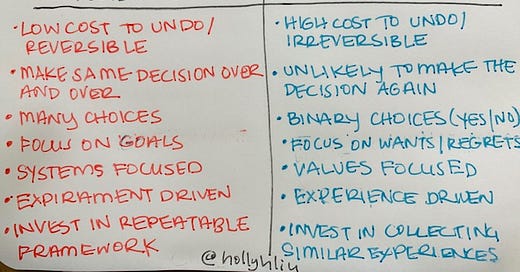 • LOW COST TO UNDO/
REVERSIBLE
• MAKE SAME DECISION OVER
AND OVER
• MANY CHOICES
• FOCUS ON GOALS
• SYSTEMS FOCUSED
• EXPIRAMENT DRIVEN
• INVEST IN REPEATABLE
FRAMEWORK
• HIGH COST TO UNDO/
IRREVERSIBLE
• UNLIKELY TO MAKE THE
DECISION AGAIN
• BINARY CHOICES (YES/NO)
• FOCUS ON WANTS/REGRETS
• VALUES FOCUSED
• EXPERIENCE DRIVEN
• INVEST IN COLLECTING
SIMILAR EXPERIENCES
@hollyhliu